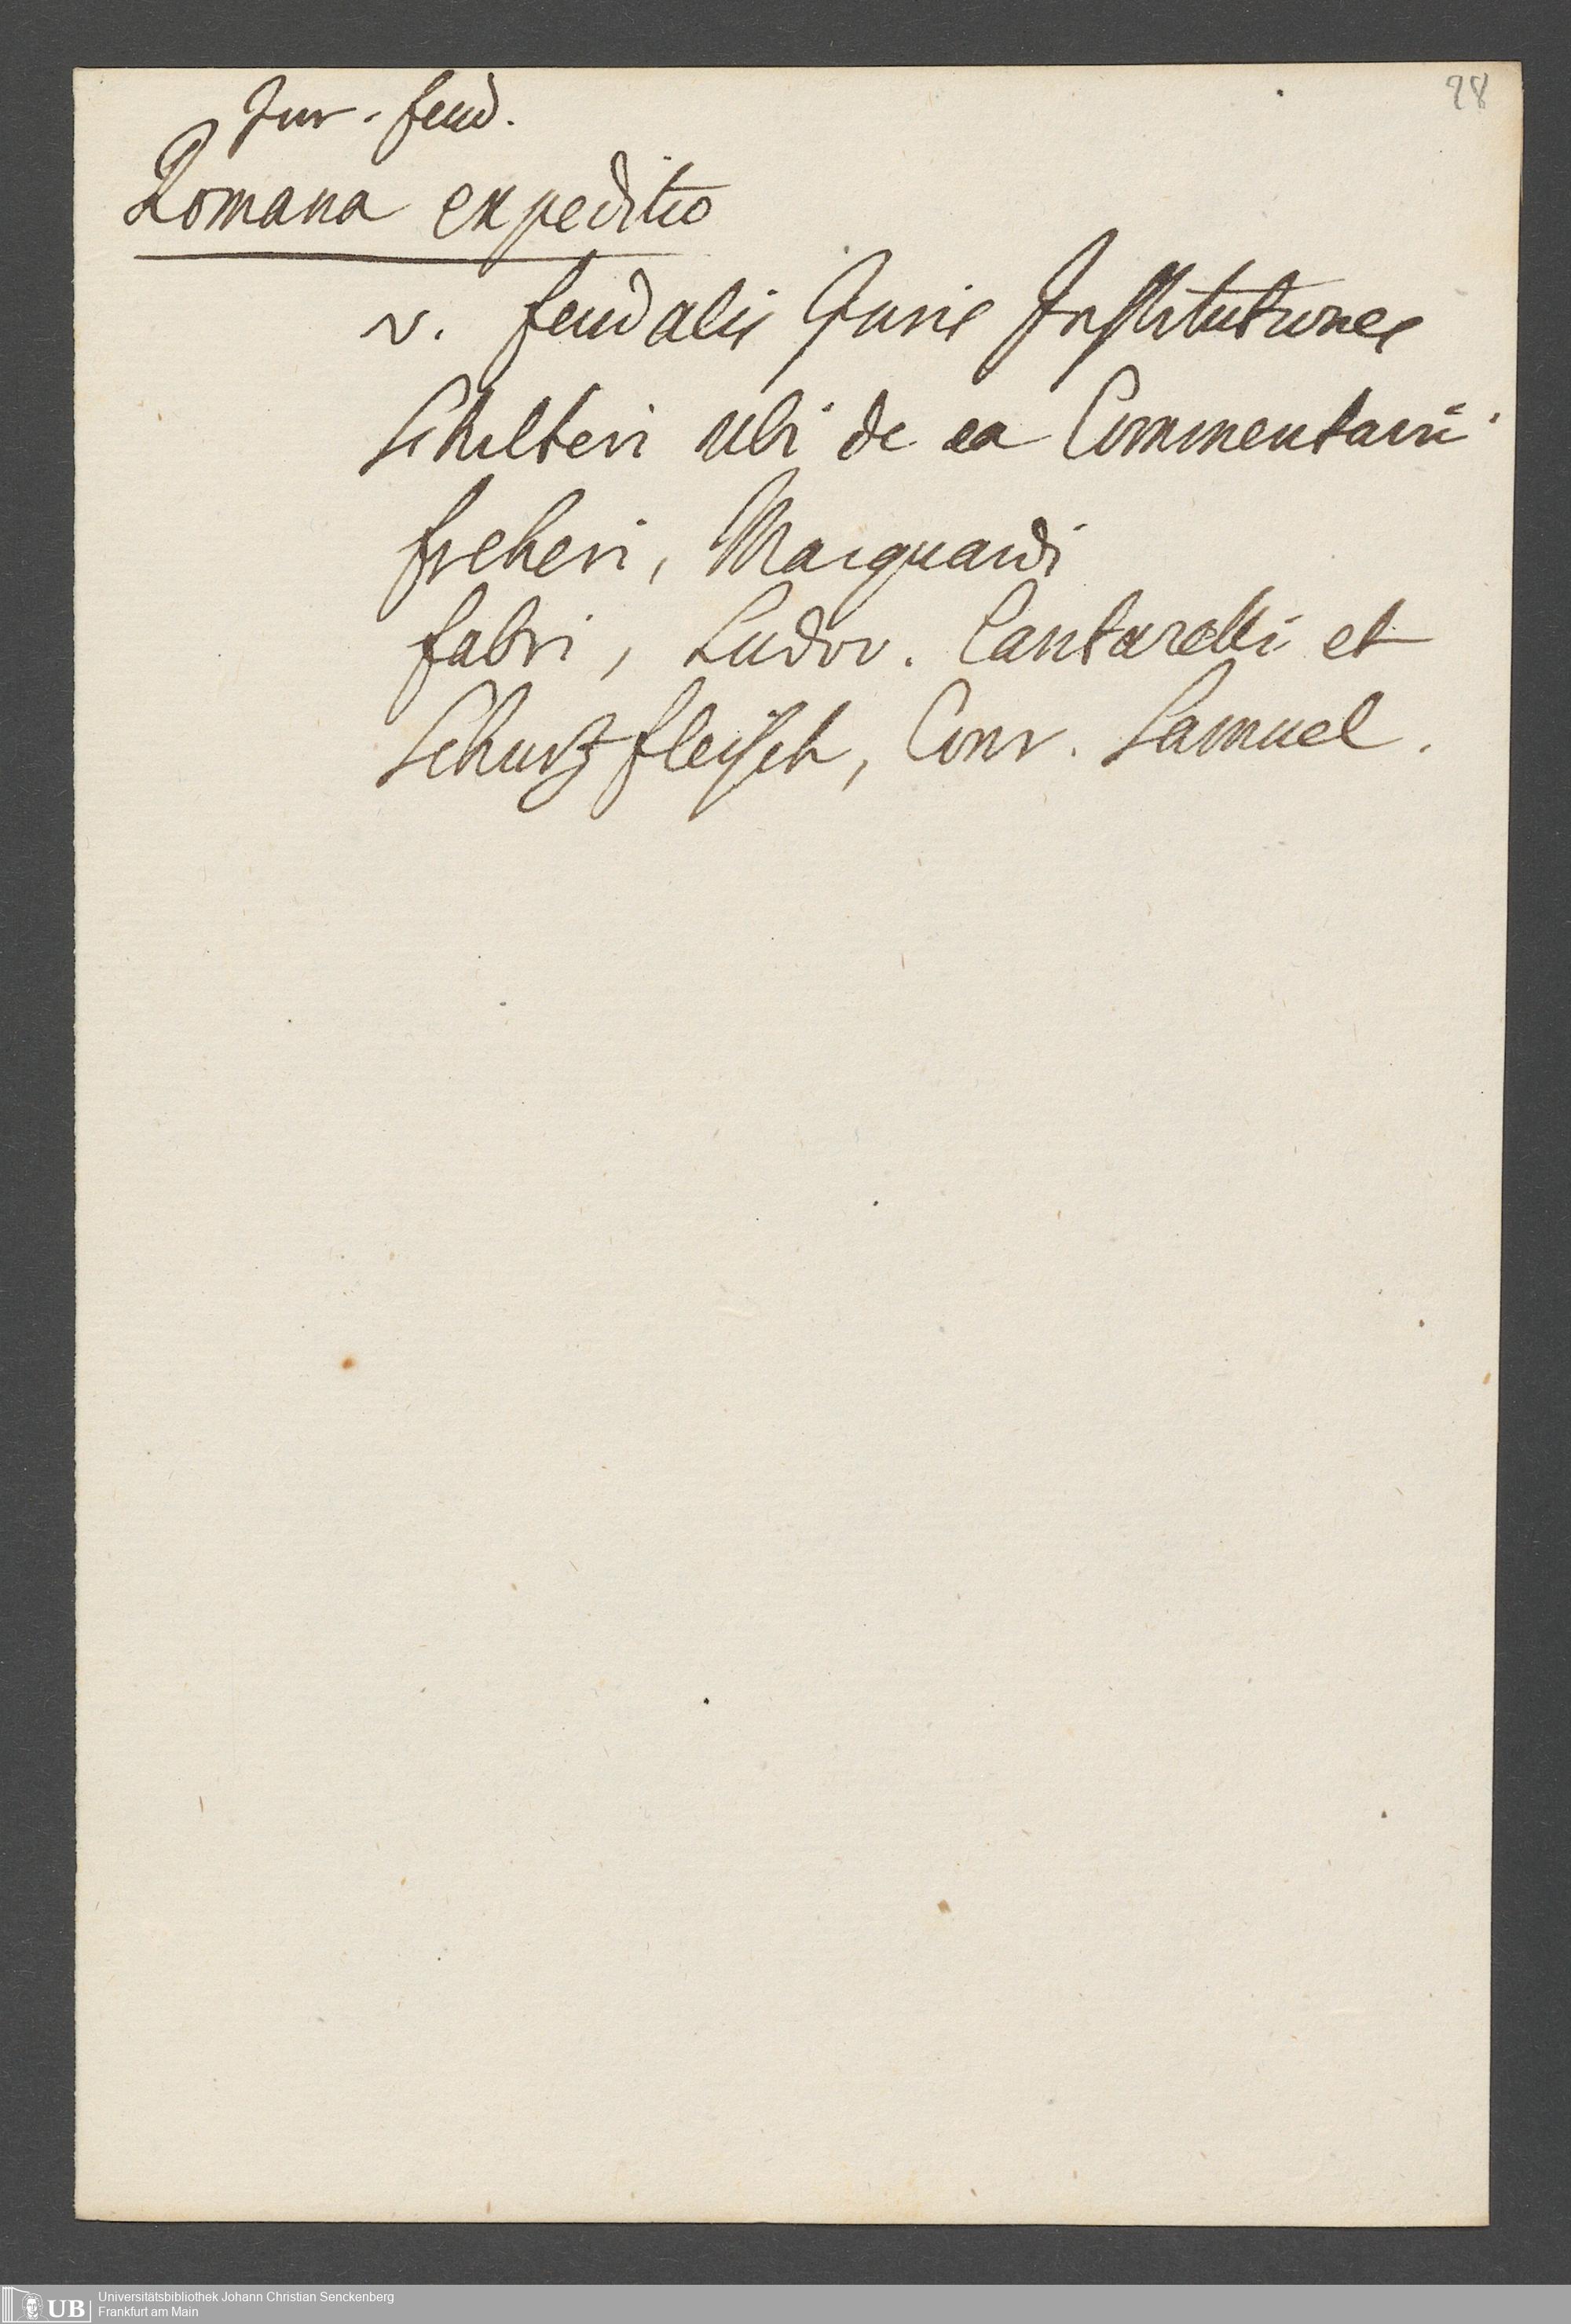 28
Jur. feud.
Romana expeditio
v. feudalis Juris Institutiones
Schilteri ubi de ea Commentarii
freheri, Marquardi
fabri, Ludov. Cantarelli et
Schurzfleisch, Conr. Samuel.
UB
Universitätsbibliothek Johann Christian Senckenberg
Frankfurt am Main